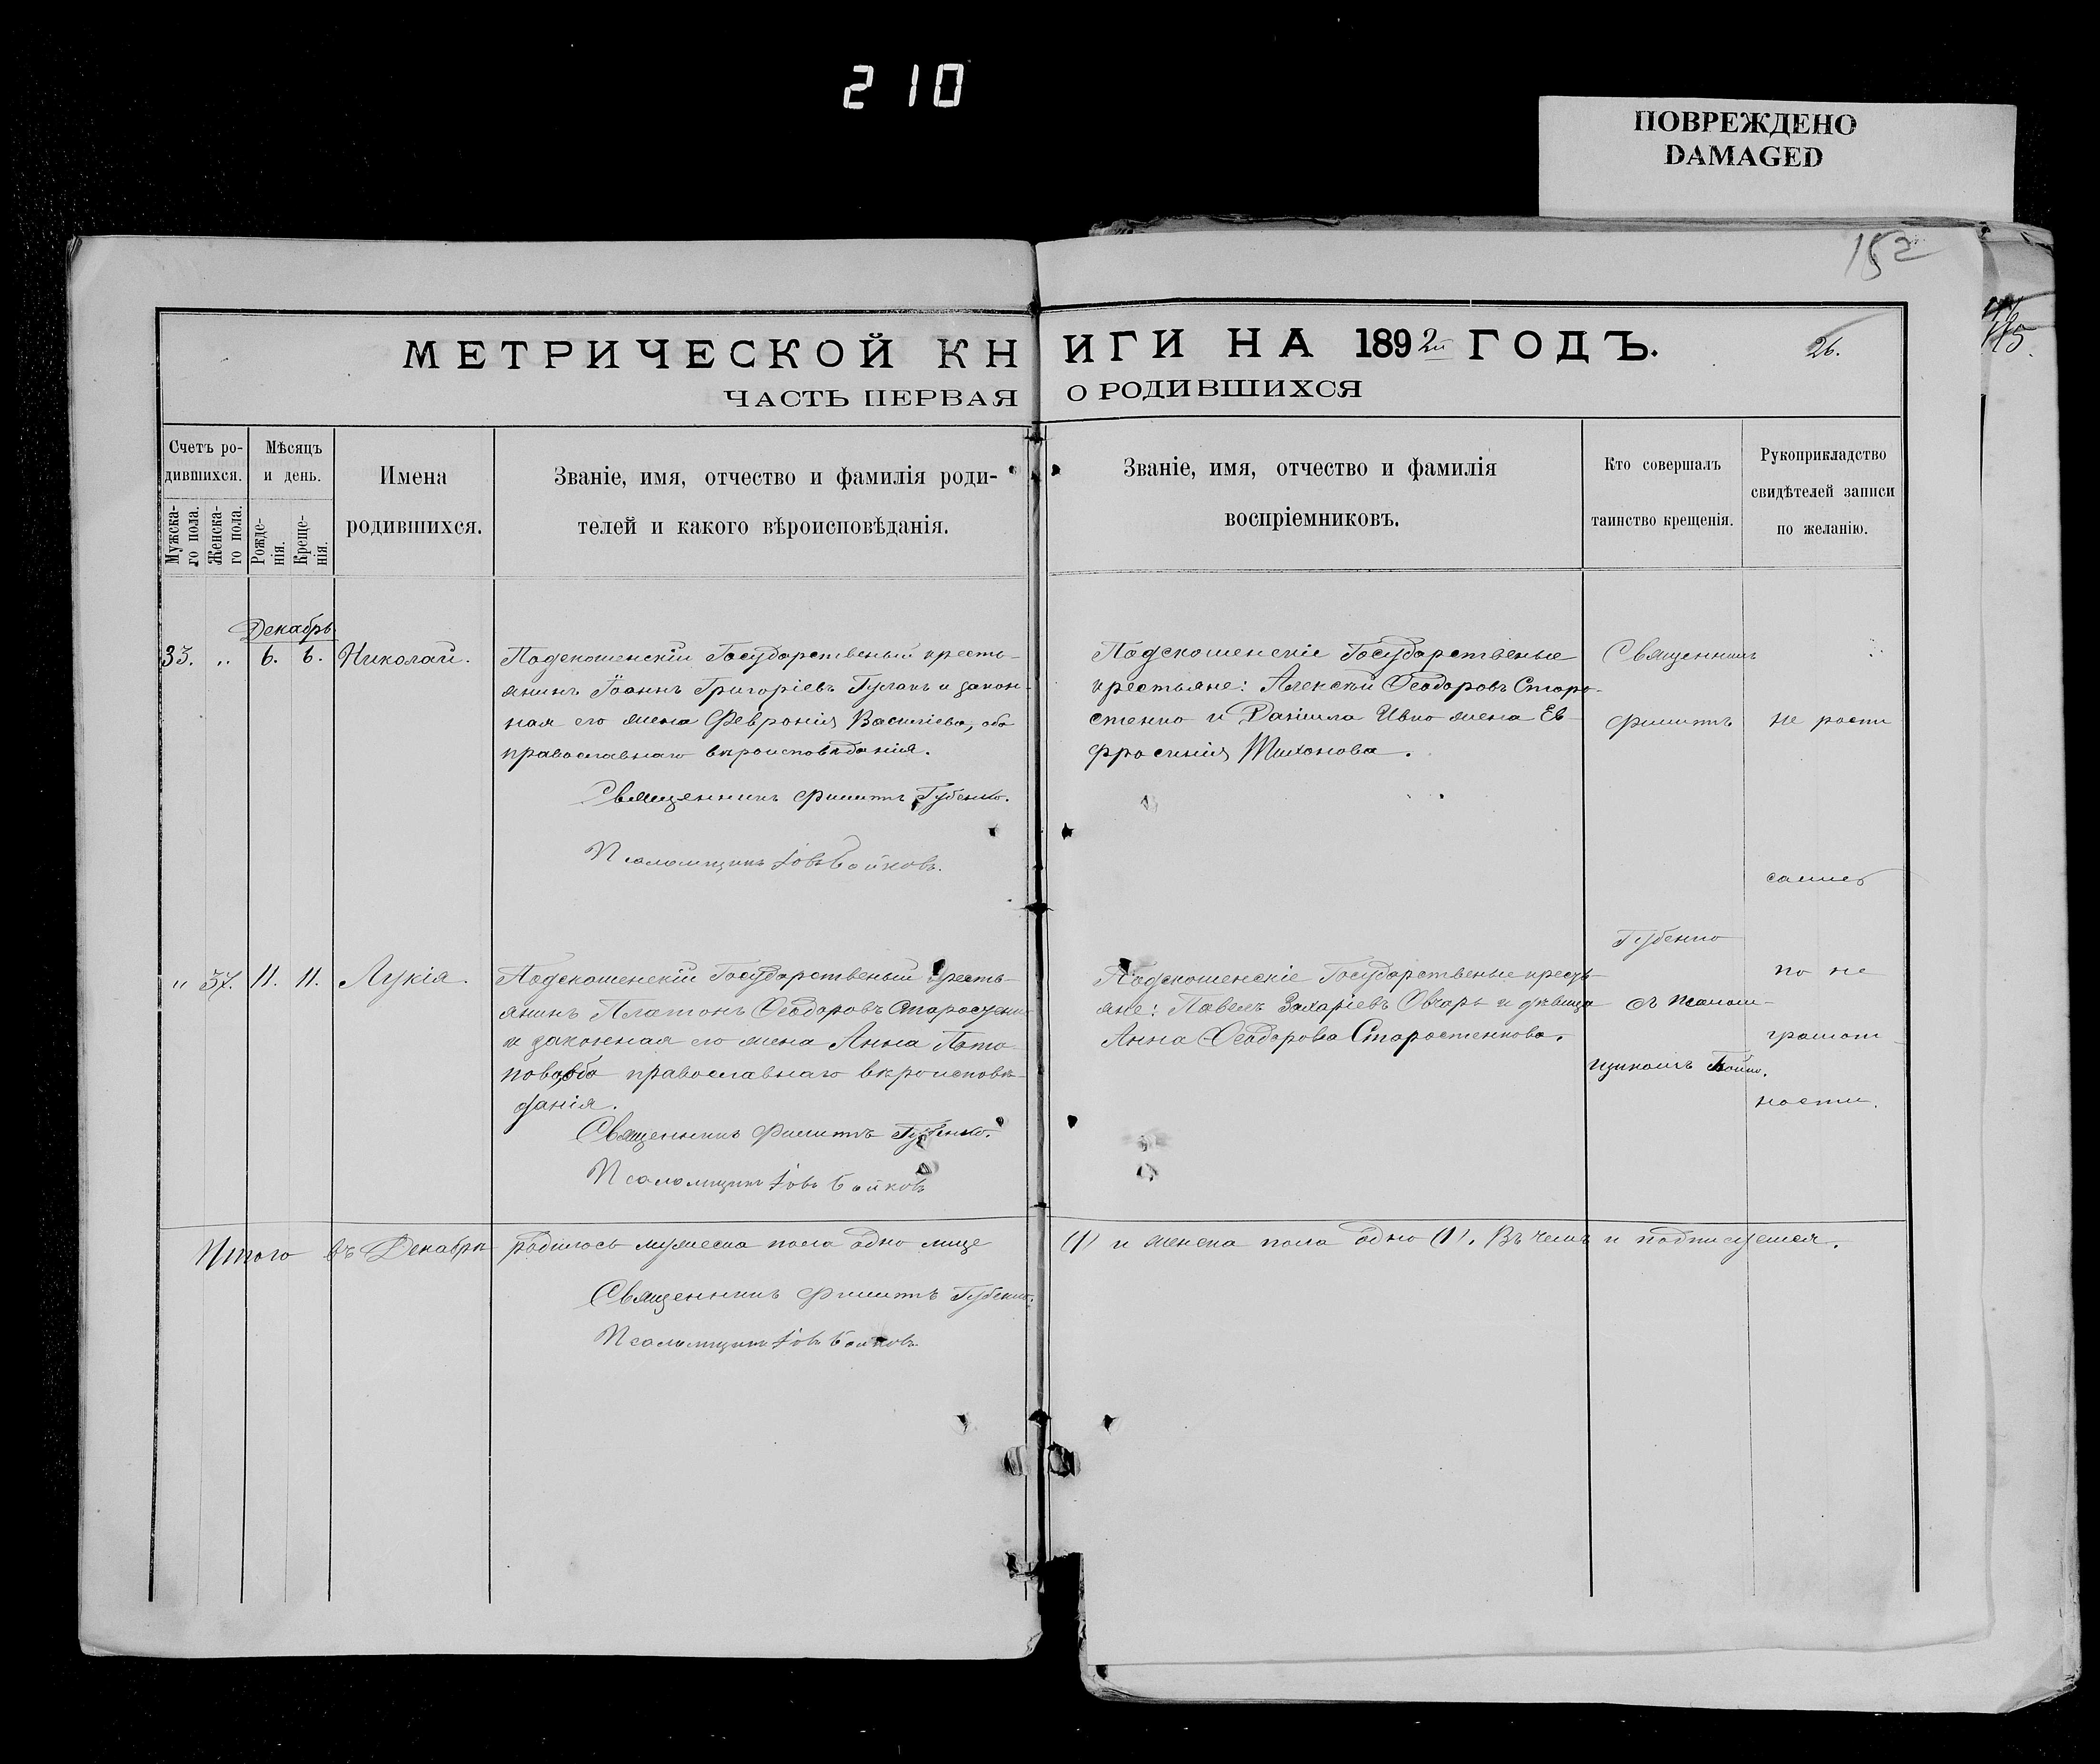 210
ПОВРЕЖДЕНО
DAMAGED
152
МЕТРИЧЕСКОЙ КНИГИ НА 1892й ГОДЪ.
26.
ЧАСТЬ ПЕРВАЯ О РОДИВШИХСЯ
Счетъ ро-
дившихся.
Мужска-
го пола.
Женска-
го пола.
Мѣсяцъ
и день.
Рожде-
нія.
Креще-
нія.
Имена
родившихся.
Званіе, имя, отчество и фамилія роди-
телей и какого вѣроисповѣданія.
Званіе, имя, отчество и фамилія
воспріемниковъ.
Кто совершалъ
таинство крещенія.
Рукоприкладство
свидѣтелей записи
по желанію.
Декабрь
33. „ 6. 6. Николай.
Подскошенскій Государственый кресть-
янинъ Іоаннъ Григоріевъ Гулакъ и закон-
ная его жена Февронія Василіева, оба
православнаго вѣроисповѣданія.
Священникъ Филиппъ Губенко.
Псаломщикъ Іовъ Бойковъ.
Подскошенскіе Государственые
крестьяне: Алексѣй Ѳеодоровъ Старо-
стенко и Даніила Ивко жена Ев-
фросинія Тихонова.
„ 37. 11. 11. Лукія.
Подскошенскій Государственый кресть-
янинъ Платонъ Ѳеодоровъ Старостенко
и законная его жена Анна Пота-
пова, оба православнаго вѣроисповѣ-
данія.
Священникъ Филиппъ Губенко.
Псаломщикъ Іовъ Бойковъ
Подскошенскіе Государственые кресть-
яне: Павелъ Захаріевъ Овчаръ и дѣвица
Анна Ѳеодорова Старостенкова.
Священникъ
Филиппъ
Губенко
съ псалом-
щикомъ Бойко.
не роспи
салис
по не
грамот-
ности.
Итого въ Декабрѣ родилось мужеска пола одно лице (1) и женска пола одно (1). Въ чемъ и подписуемся.
Священникъ Филиппъ Губенко.
Псаломщикъ Іовъ Бойковъ.